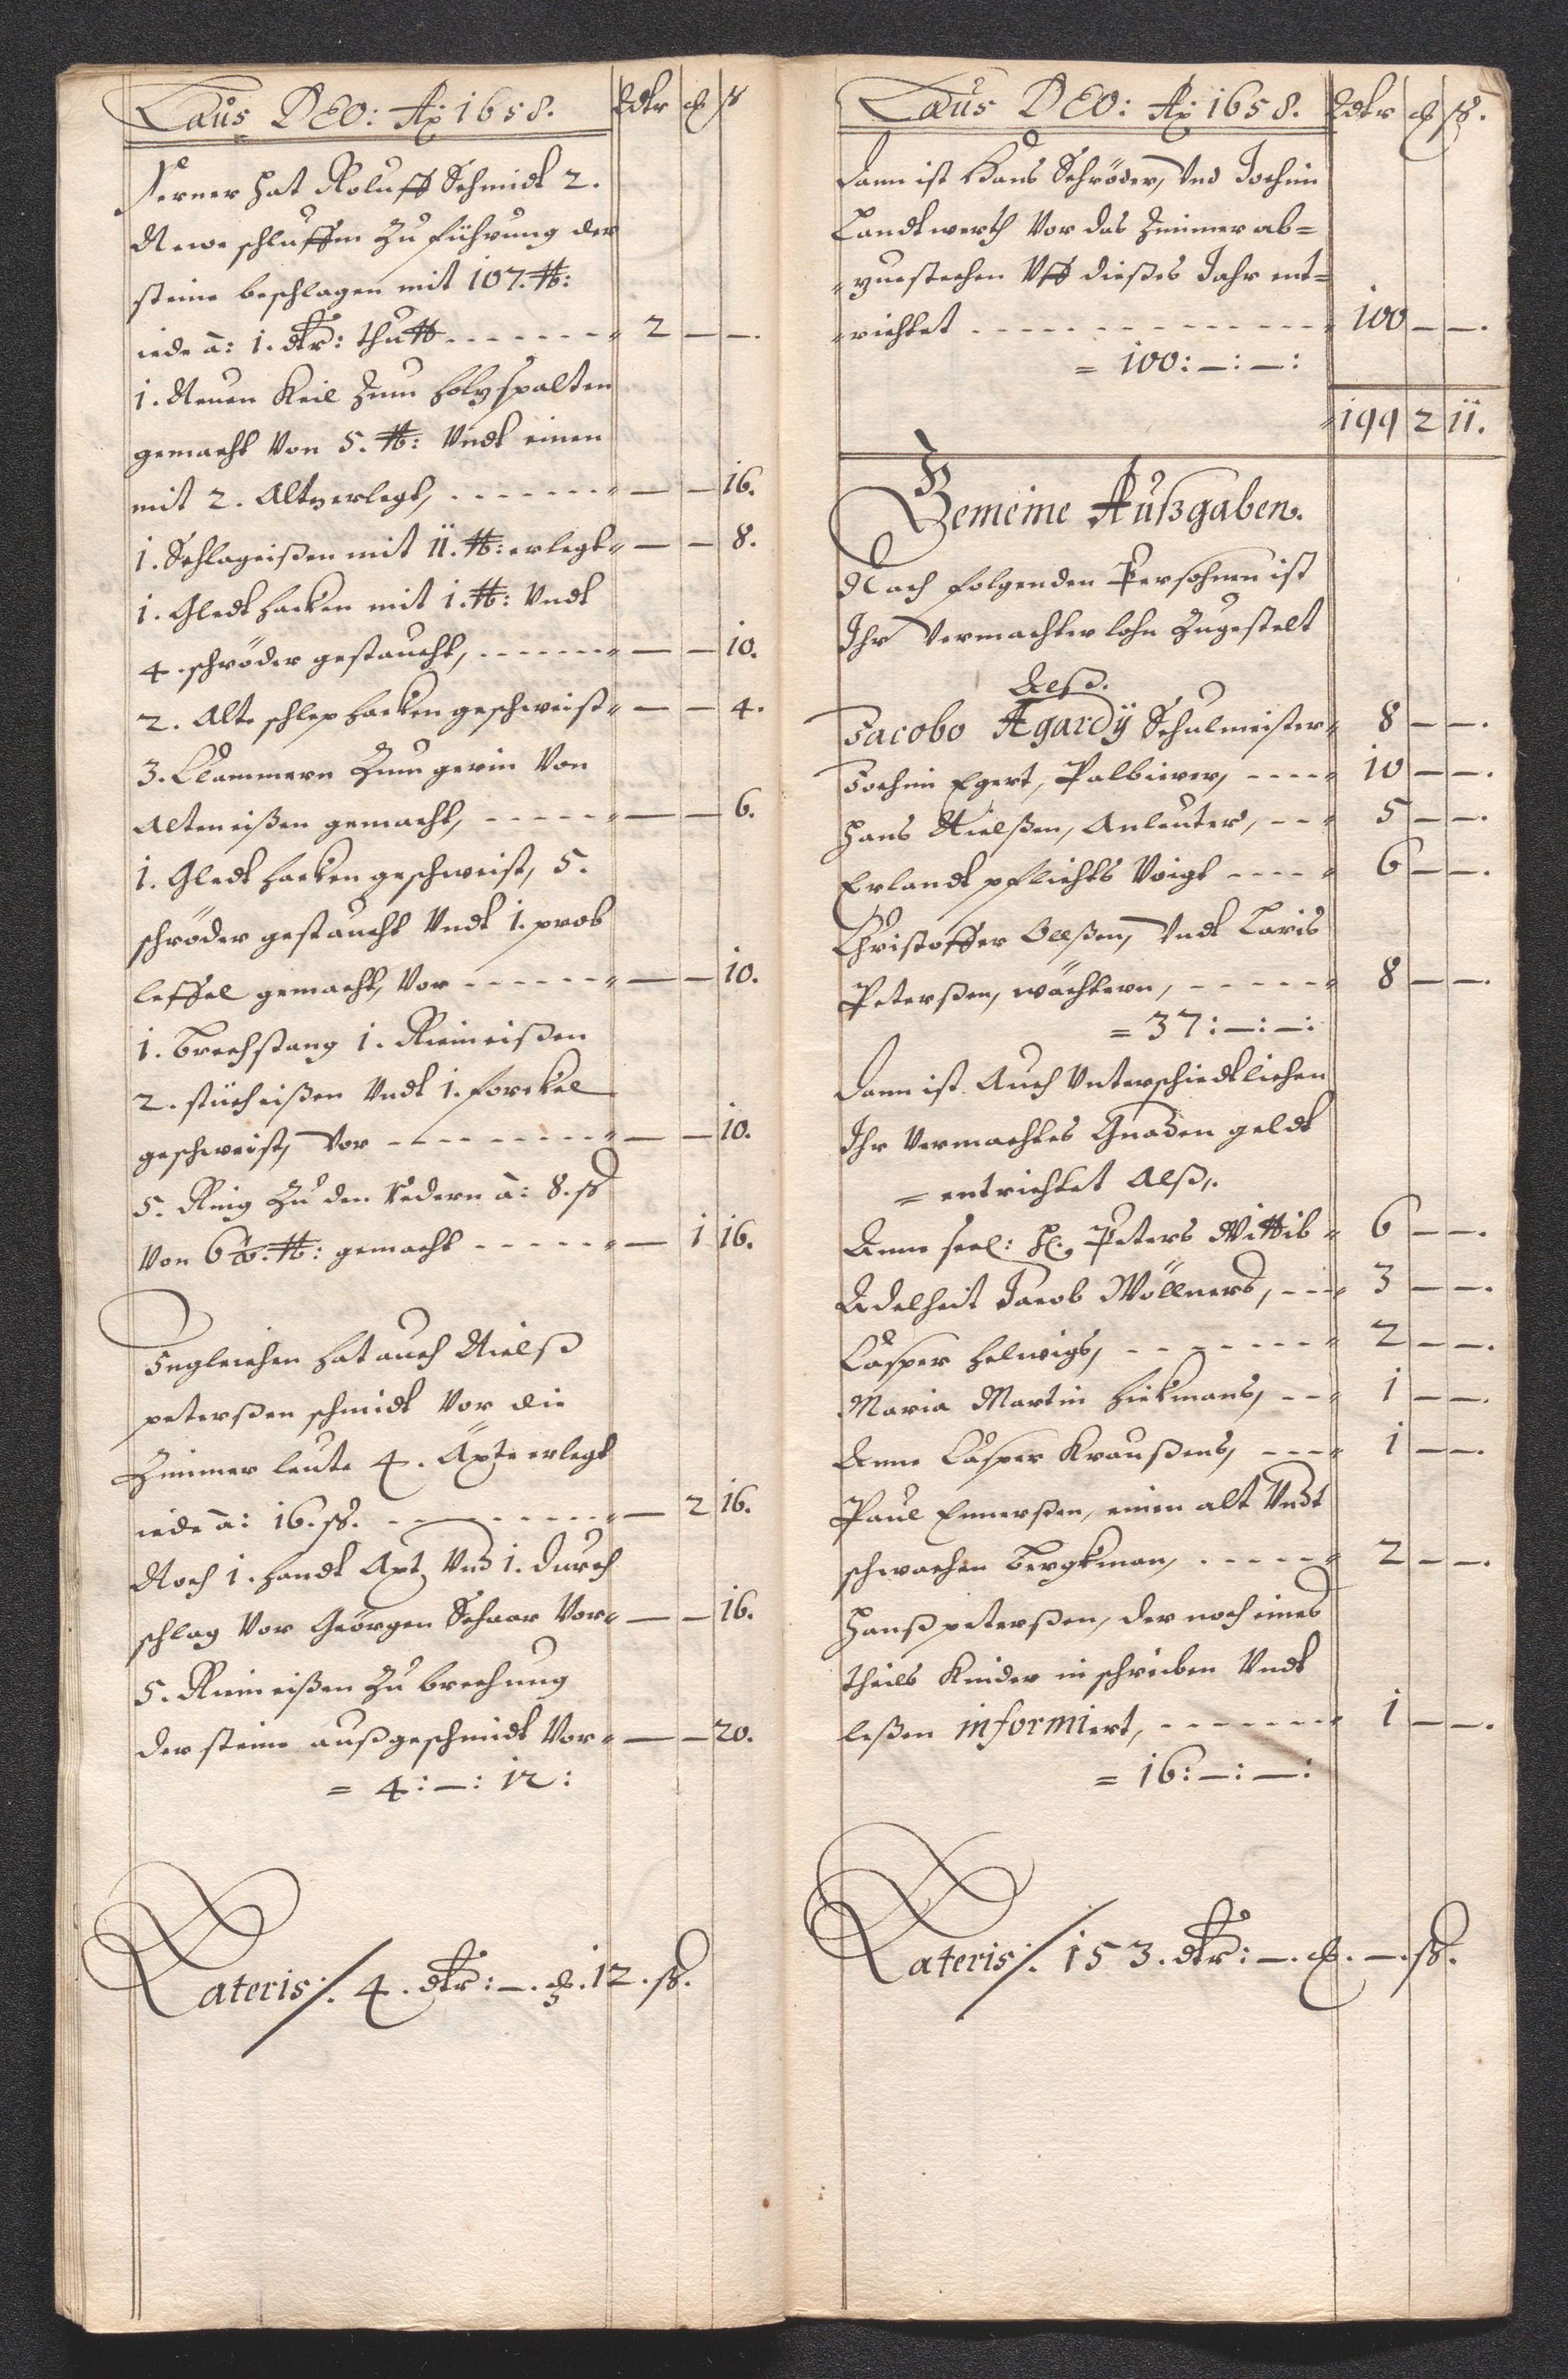 Laus DEO: Aō 1658. Rdlr ch ß
Ferner hat Roluff Schmidt 2.
Newe schluffen Zu führung der
steine beschlagen mit 107. ℔:
iede à: 1. dlr: thutt - - - - - - 2 — —.
1. Neuen Keil Zum holtzspalten
gemacht Von 5. ℔: Vndt einen
mit 2. Alt verlegt, - - - - - - — — 16.
1. Schlageißen mit 11. ℔: erlegt — — 8.
1. Gledt hacken mit 1. ℔: Vndt
4. schröder gestaucht, - - - - - - — — 10.
2. Alte schlep hacken geschweist — — 4.
3. Clammern Zum gerin Von
Alten eißen gemacht, - - - - - — — 6.
1. Gledt hacken geschweist, 5.
schröder gestaucht Vndt 1. prob
leffel gemacht, Vor - - - - - - — — 10.
1. Brechstang 1. Rinneißen
2. sticheißen Vndt 1. forckel
geschweist, Vor - - - - - - — — 10.
5. Ring Zu den Redern à: 8. ß
Von 6 ℔: gemacht - - - - - — 1 16.
Ingleichen hat auch Nielß
peterßen schmidt Vor die
Zimmer leute 4. Äxte erlegt
iede à: 16. ß. - - - - - - — 2 16.
Noch 1. handt Axt Vnd 1. durch
schlag Vor Geörgen Schaar Vor — — 16.
5. Rinneißen Zu brechung
der steine außgeschmidt Vor — — 20.
= 4: —: 12:
Lateris ⁒. 4. dlr: —. ch. 12. ß.
Laus DEO: Aō 1658. Rdlr ch ß.
Dann ist Hans Schröder, Vnd Jochim
Landtwerth Vor das Zimmer ab=
zuestechen Vff dießes Jahr ent=
richtet - - - - - - - - - - 100 — —.
= 100: —: —:
199 2 11.
Gemeine Außgaben.
Nach folgenden Persohnen ist
Ihr Vermachter lohn Zugestelt
Alß.
Jacobo Agardÿ Schulmeister 8 — —.
Jochim Egert, Palbierer, - - - - 10 — —.
Hans Nielßen, Anleuter, - - 5 — —.
Erlandt pflichts Voigt - - - - 6 — —.
Christoffer Ollßen, Vndt Laris
Peterßen, wächtern, - - - - - 8 — —.
= 37: —: —:
Dann ist Auch Vnterschiedtlichen
Ihr Vermachtes Gnaden geldt
= entrichtet Alß.
Anne seel: H. Peters Wittib 6 — —.
Adelheit Jacob Wöllners, - - - 3 — —.
Casper Helwigs, - - - - - - 2 — —.
Maria Martin Hickmans, - - 1 — —.
Anne Casper Kraußens, - - - 1 — —.
Paul Ennerßen, einen alt Vndt
schwachen Bergkman, - - - - - 2 — —.
Hanß peterßen, der noch eines
theils Kinder in schreiben Vndt
leßen informiert, - - - - - - 1 — —.
= 16: —: —:
Lateris ⁒. 153. dlr: —. ch. —. ß.